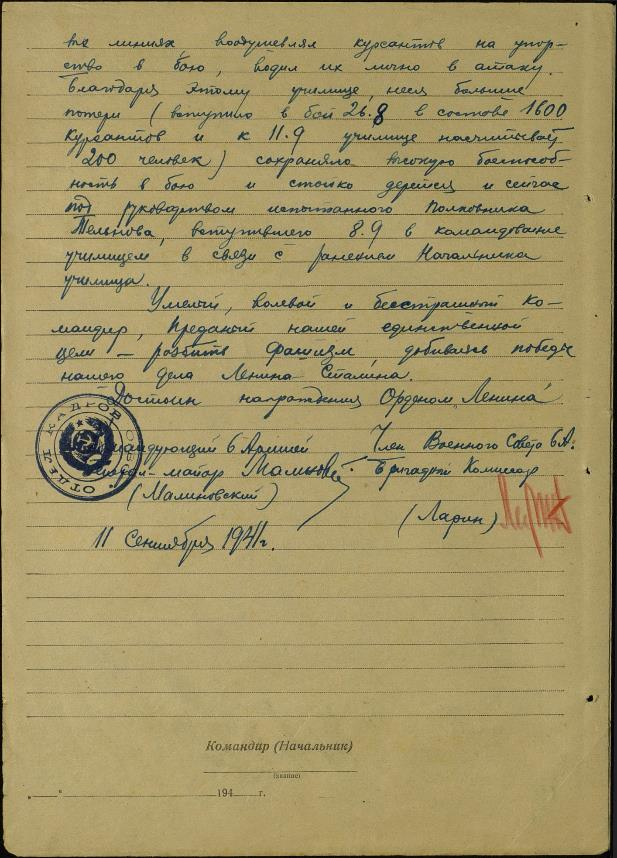 те линиях, воодушевлял курсантов на упор-
ство в бою, водил их лично в атаку.
Благодаря этому училище, неся большие
потери (вступило в бой 26.8 в составе 1600
курсантов и к 11.9 училище насчитывает
200 человек) сохраняло высокую боеспособ-
ность в бою и стойко дерется и сейчас
под руководством испытанного Полковника
Тельнова, вступившего 8.9 в командование
училищем в связи с ранением Начальника
училища.
Умелый, волевой и бесстрашный ко-
мандир, преданый нашей единственной
цели — разбить фашизм, добиваясь победы
нашего дела Ленина Сталина.
Достоин награждения Орденом „Ленина"
ОТДЕЛ КАДРОВ
мандующий 6 Армией
Член Военного Совета 6 А.
-майор
Бригадный Комиссар
(Малиновский)
(Ларин)
11 Сентября 1941 г.
Командир (Начальник)
(звание)
„ " 194 г.